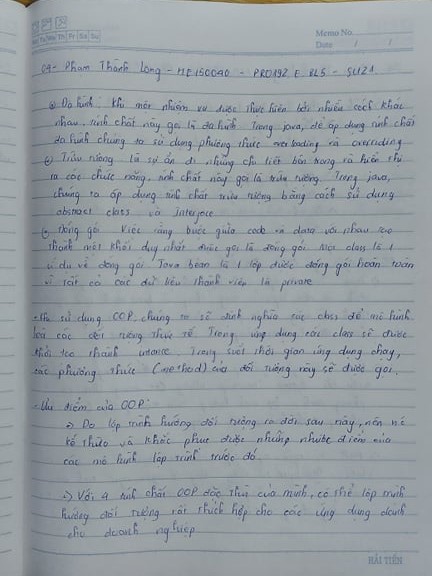 Memo No.
Date / /
04 - Phạm Thành Long - HE150040 - PRO192 E BL5 - SU21
Đa hình: Khi một nhiệm vụ được thực hiện bởi nhiều cách khác
nhau, tính chất này gọi là đa hình. Trong java, để áp dụng tính chất
đa hình chúng ta sử dụng phương thức overloading và overriding
Trừu tượng là sự ẩn đi những chi tiết bên trong và hiển thị
ra các chức năng, tính chất này gọi là trừu tượng. Trong java,
chúng ta áp dụng tính chất trừu tượng bằng cách sử dụng
abstract class và Interface
Đóng gói Việc ràng buộc giữa code và data với nhau tạo
thành một khối duy nhất được gọi là đóng gói. Một class là 1
ví dụ về đóng gói Java bean là 1 lớp được đóng gói hoàn toàn
vì tất cả các dữ liệu thành viên là private
- Khi sử dụng OOP, chúng ta sẽ định nghĩa các class để mô hình
hoá các đối tượng thực tế. Trong ứng dụng các class sẽ được
khởi tạo thành Trong suốt thời gian ứng dụng chạy,
các phương thức (method) của đối tượng này sẽ được gọi.
- Ưu điểm của OOP:
Do lập trình hướng đối tượng ra đời sau này, nên nó
kế thừa và khắc phục được những nhược điểm của
các mô hình lập trình trước đó
Với 4 tính chất OOP đặc thù của mình, có thể lập trình
hướng đối tượng rất thích hợp cho các ứng dụng doanh
cho doanh nghiệp
HẢI TIẾN